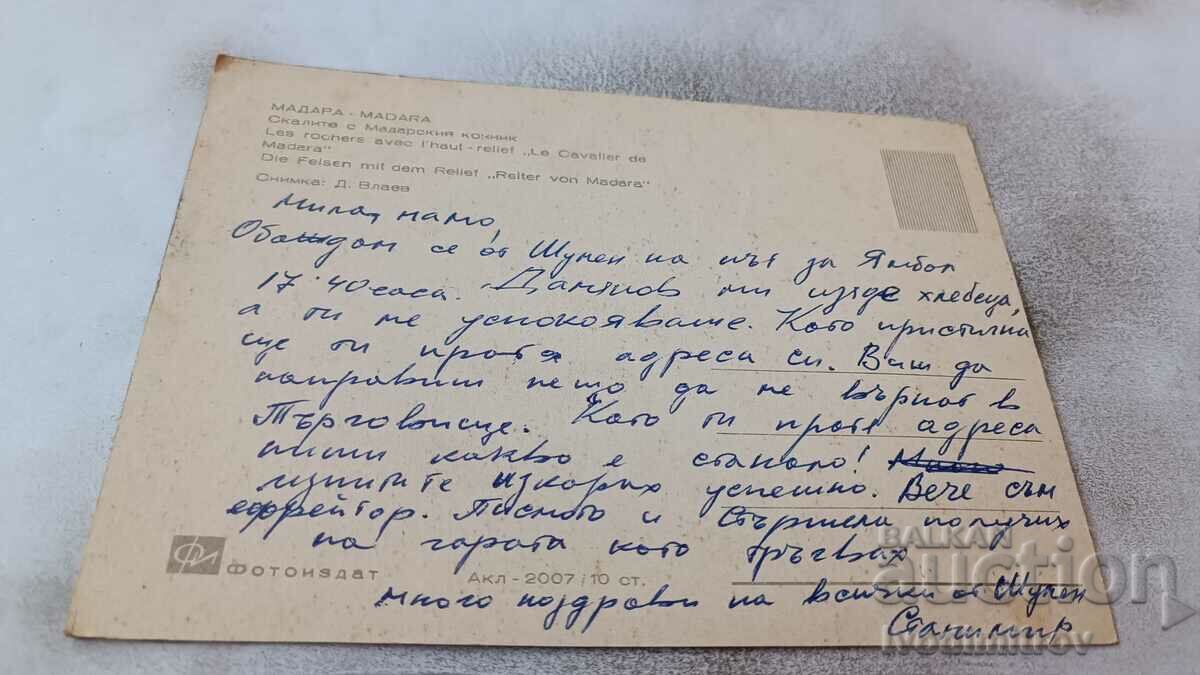 МАДАРА - MADARA
Скалите с Мадарския конник
Les rochers avec l'haut-relief „Le Cavalier de
Madara"
Die Felsen mit dem Relief „Reiter von Madara"
Снимка: Д. Влаев
Мила мамо,
Обаждам се от Шумен на път за Ямбол
17.40 часа. Дамянов ми изяде хлебеца,
а ти не успокояваше. Като пристигна
ще ти пратя адреса си. Виж да
направиш нещо да не върнат в
Търговище. Като ти пратя адреса
пиши какво е станало!
изпитите изкарах успешно. Вече съм
ефрейтор. Писмото и Стършела получих
на гарата като тръгвах
ФИ ФОТОИЗДАТ
Акл - 2007 10 ст.
много поздрави на всички от Шумен
Станимир
BALKAN
auction